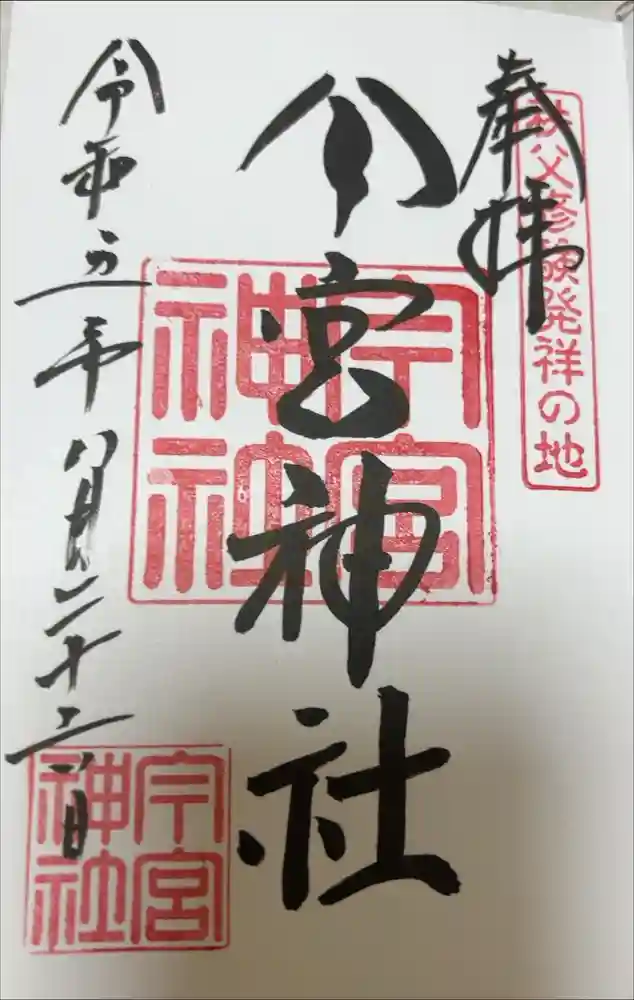 奉拝
秩父修験発祥の地
今宮神社
今宮神社
令和五年八月二十二日
今宮神社